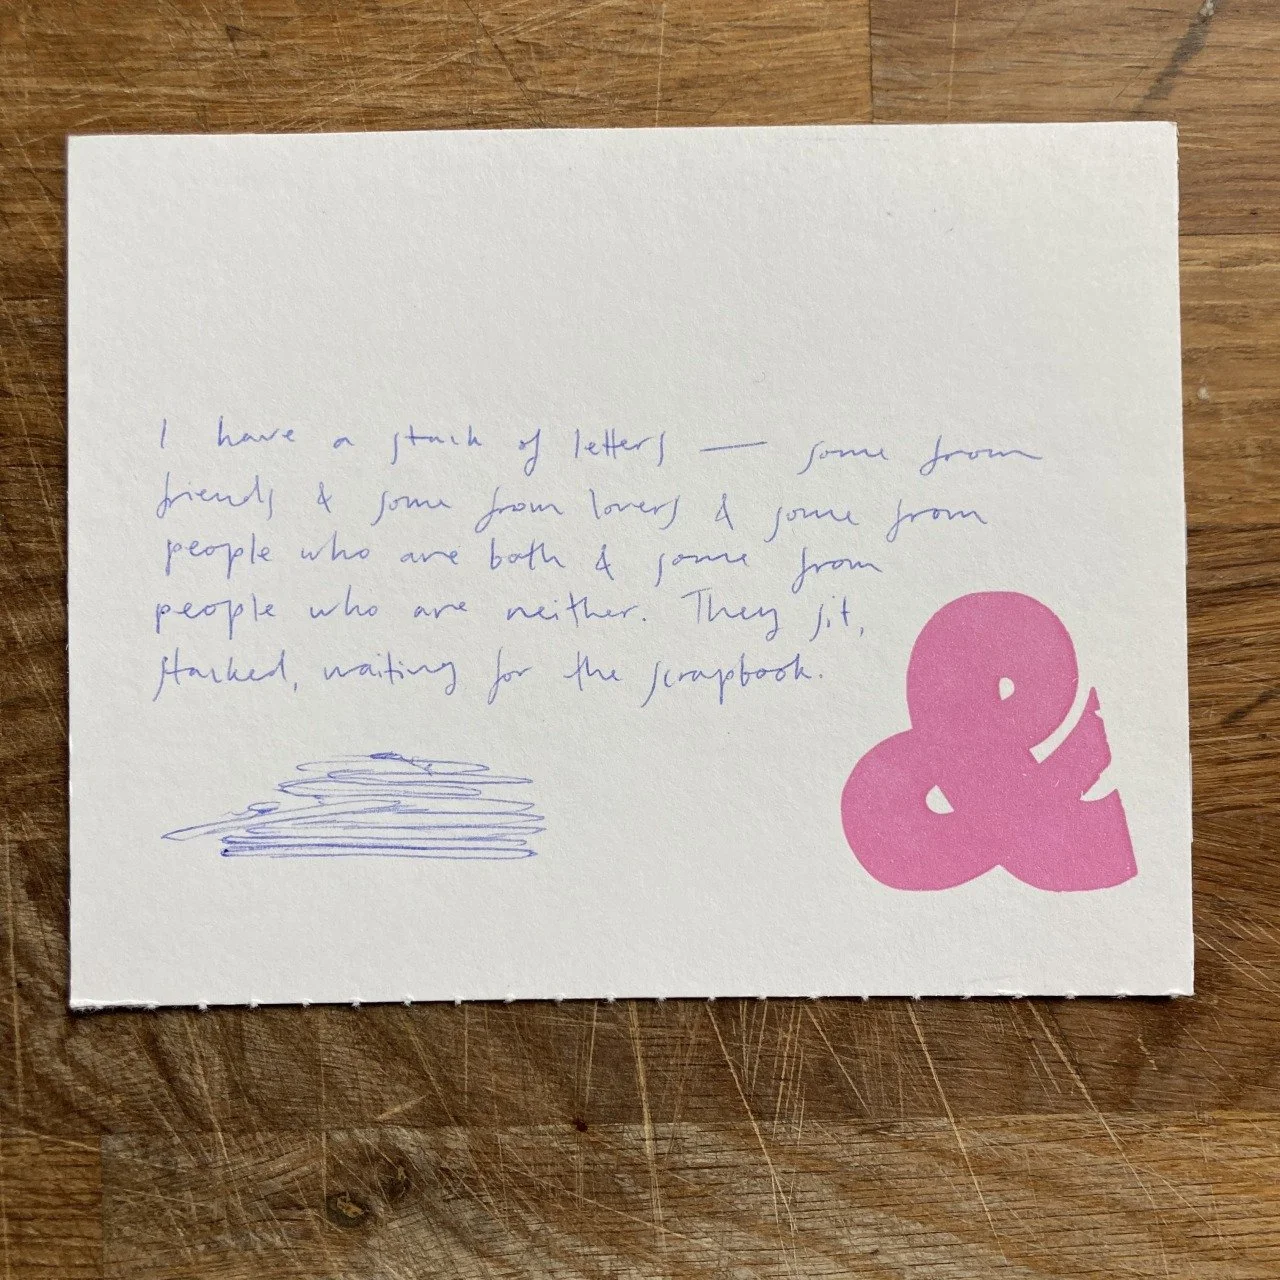 I have a stack of letters — some from
friends & some from lovers & some from
people who are both & some from
people who are neither. They sit,
stacked, waiting for the scrapbook.
&